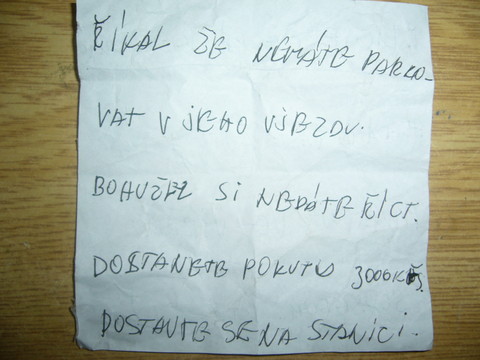 ŘÍKAL ŽE NEMÁTE PARKO-
VAT V JEHO VJEZDU.
BOHUŽEL SI NEDÁTE ŘÍCT.
DOSTANETE POKUTU 3000KČ.
DOSTAVTE SE NA STANICI.